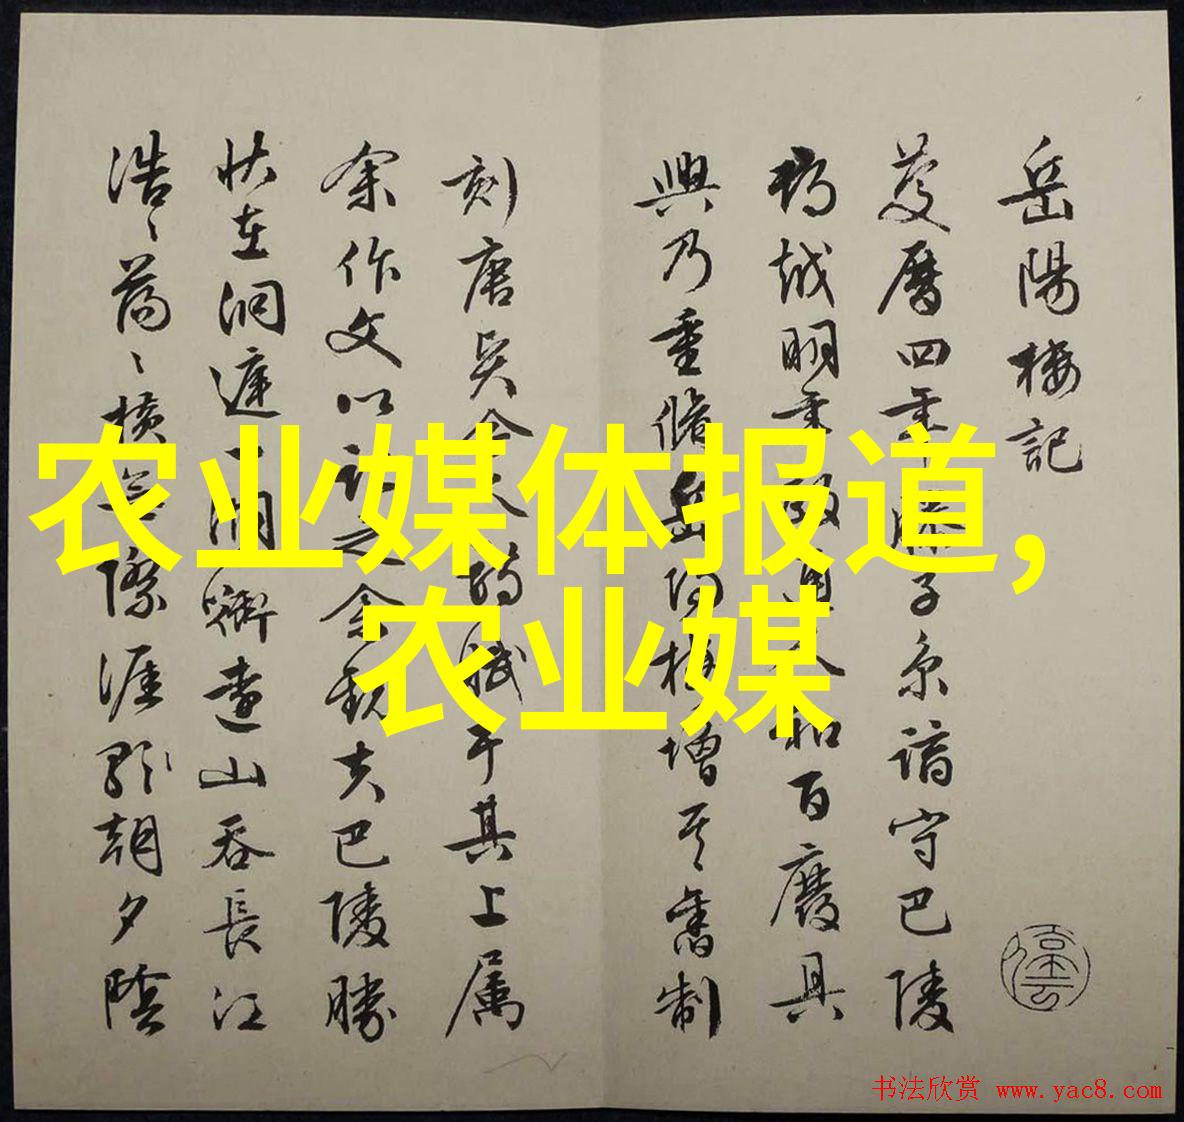 岳陽楼記
慶曆四年滕子京謫守巴陵
郡越明年政通人和百廢具
興乃重脩岳陽楼增其舊制
刻唐賢今人詩賦于其上属
余作文以記之余觀夫巴陵勝
状在洞庭一湖銜遠山吞長江
浩〻蕩〻橫無際涯朝夕陰
农业媒体报道,
农业媒
书法欣赏 www.yac8.com